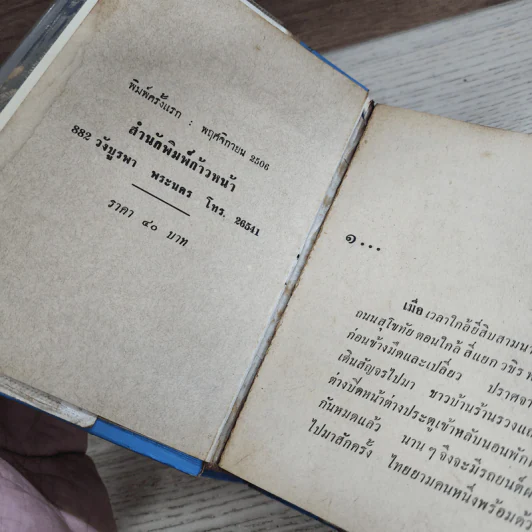 พิมพ์ครั้งแรก : พฤศจิกายน 2506
สำนักพิมพ์ก้าวหน้า
882 วังบูรพา พระนคร โทร. 26541
ราคา ๔๐ บาท
๑...
เมื่อเวลาใกล้ยี่สิบสามนา
ถนนสุโขทัย ตอนใกล้สี่แยกวชิรพ
ก่อนข้างมืดและเปลี่ยว ปราศจา
เดินสัญจรไปมา ชาวบ้านร้านรวงแถ
ต่างปิดหน้าต่างประตูเข้าหลับนอนพักผ
กันหมดแล้ว นาน ๆ จึงจะมีรถยนต์ผ
ไปมาสักครั้ง ไทยยามคนหนึ่งพร้อมด้ว